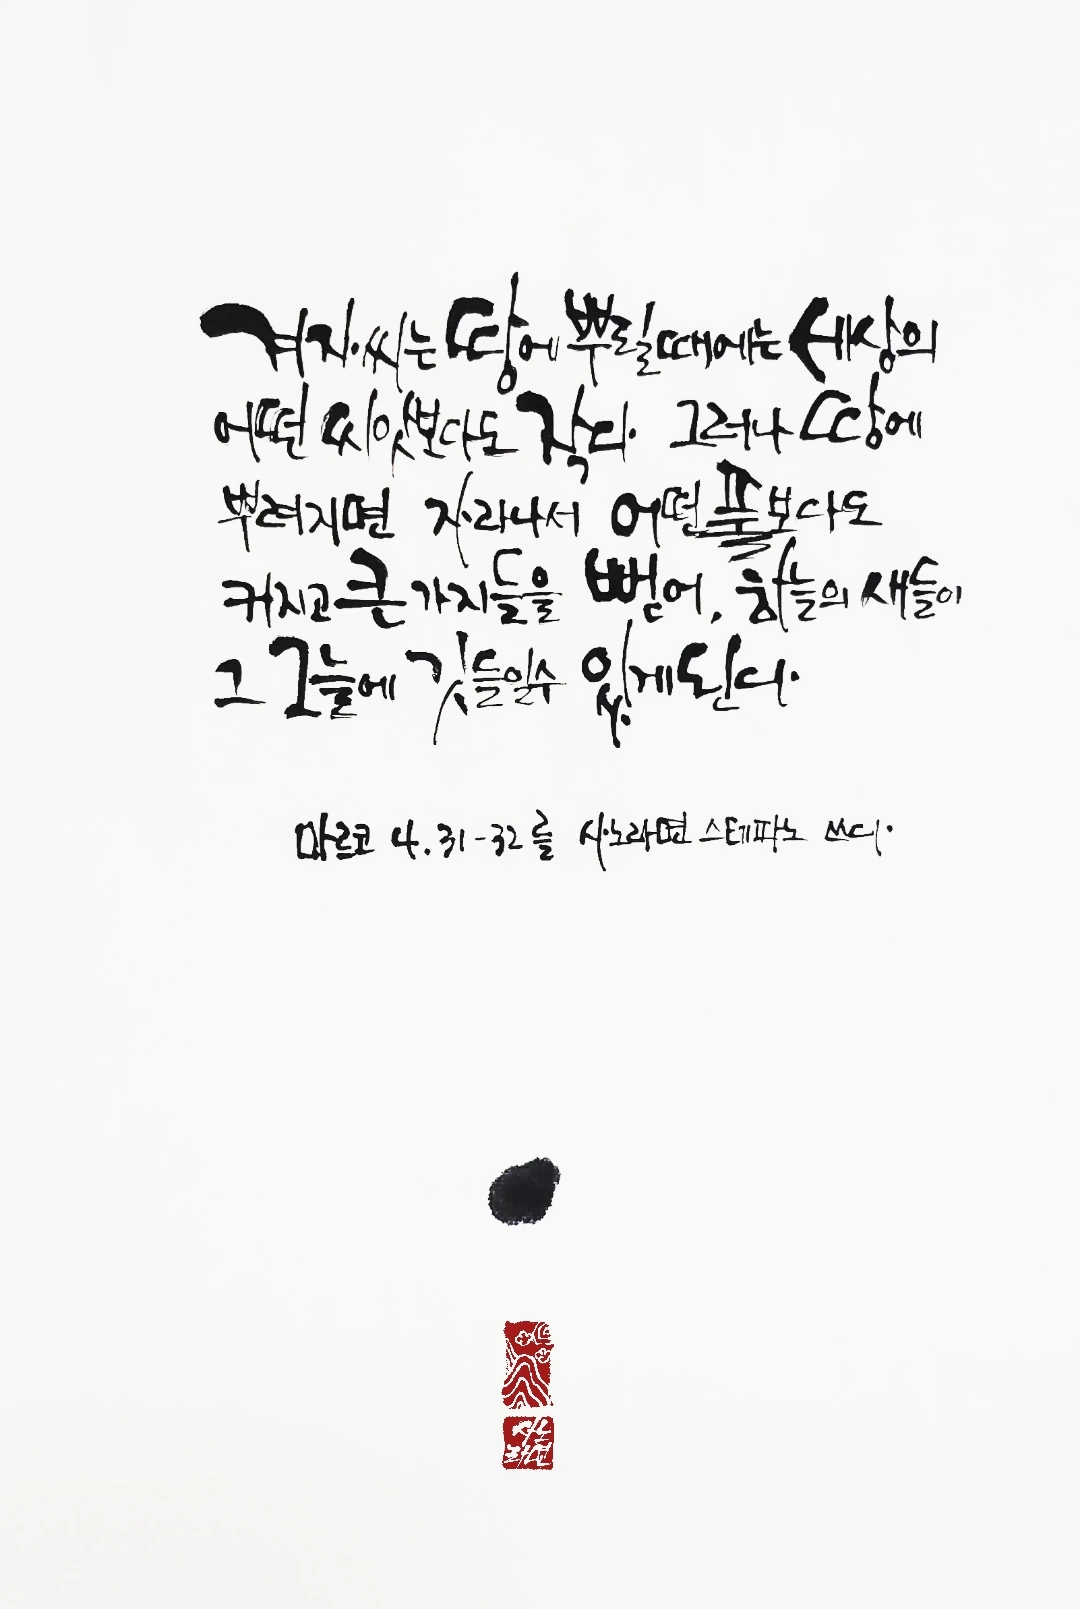 겨자씨는 땅에 뿌릴때에는 세상의
어떤 씨앗보다도 작다. 그러나 땅에
뿌려지면 자라나서 어떤 풀보다도
커지고 큰 가지들을 뻗어, 하늘의 새들이
그 그늘에 깃들일수 있게된다.
마르코 4.31-32를 사노라면 스테파노 쓰다.
사노
라면